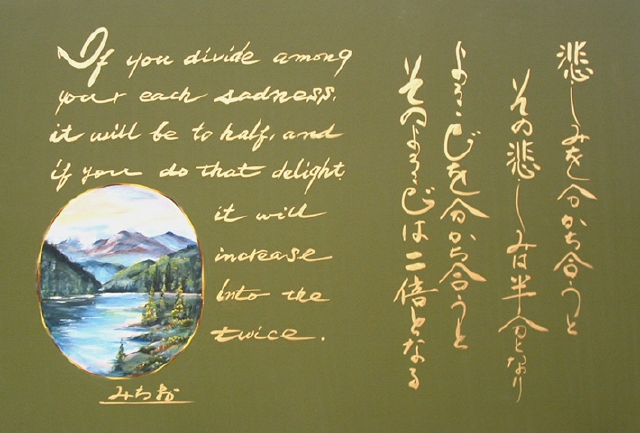 If you divide among
your each sadness.
it will be to half, and
if you do that delight.
it will
increase
into the
twice.
悲しみを分かち合うと
その悲しみは半分となり
よろこびを分かち合うと
そのよろこびは二倍となる